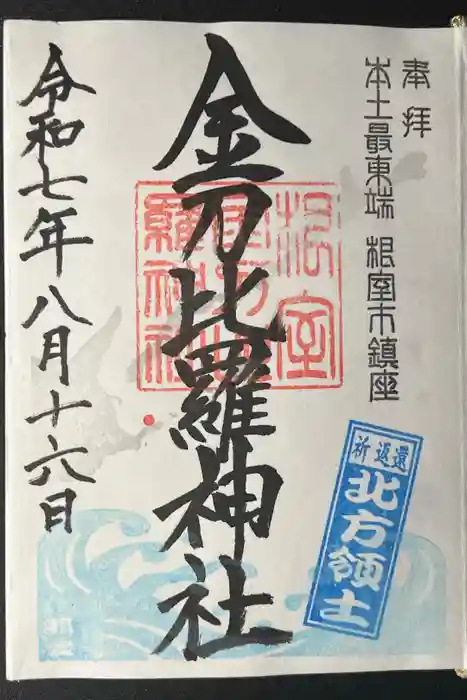 奉拝
本土最東端 根室市鎮座
金刀比羅神社
根室
金刀比
羅神社
令和七年八月十六日
祈返還
北方領土